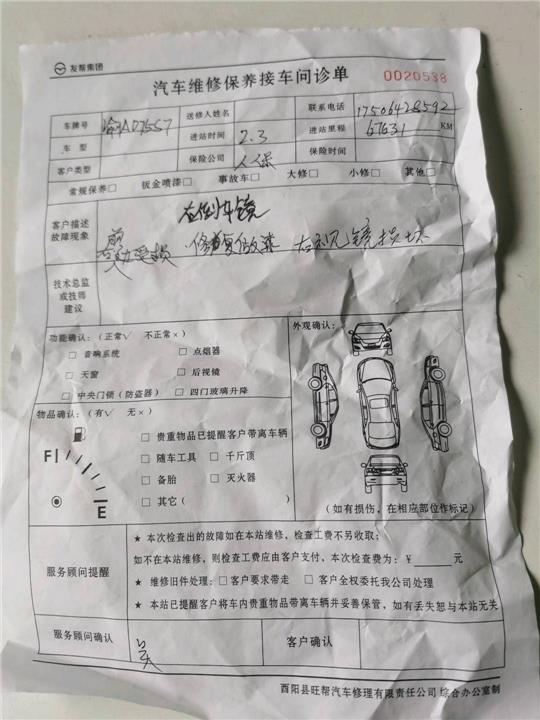 友帮集团
汽车维修保养接车问诊单 0020538
车牌号 渝AD7557 送修人姓名 联系电话 17506428592
车型 进站时间 2.3 进站里程 67631 KM
客户类型 保险公司 人保 保险时间
常规保养□ 钣金喷漆□ 事故车□ 大修□ 小修□ 其他□
客户描述
故障现象
右倒车镜
受损 右 镜损坏
技术总监
或技师
建议
功能确认:(正常√ 不正常×) 外观确认:
□ 音响系统 □ 点烟器
□ 天窗 □ 后视镜
□ 中央门锁(防盗器) □ 四门玻璃升降
物品确认:(有√ 无×)
□ 贵重物品已提醒客户带离车辆
F
□ 随车工具 □ 千斤顶
□ 备胎 □ 灭火器
E
□ 其它( )
(如有损伤,在相应部位作标记)
服务顾问提醒
★ 本次检查出的故障如在本站维修,检查工费不另收取;
如不在本站维修,则检查工费应由客户支付,本次检查费为:¥____元
★ 维修旧件处理:□客户要求带走 □客户全权委托我公司处理
★ 本站已提醒客户将车内贵重物品带离车辆并妥善保管,如有丢失恕与本站无关
服务顾问确认 客户确认
酉阳县旺帮汽车修理有限责任公司 综合办公室制